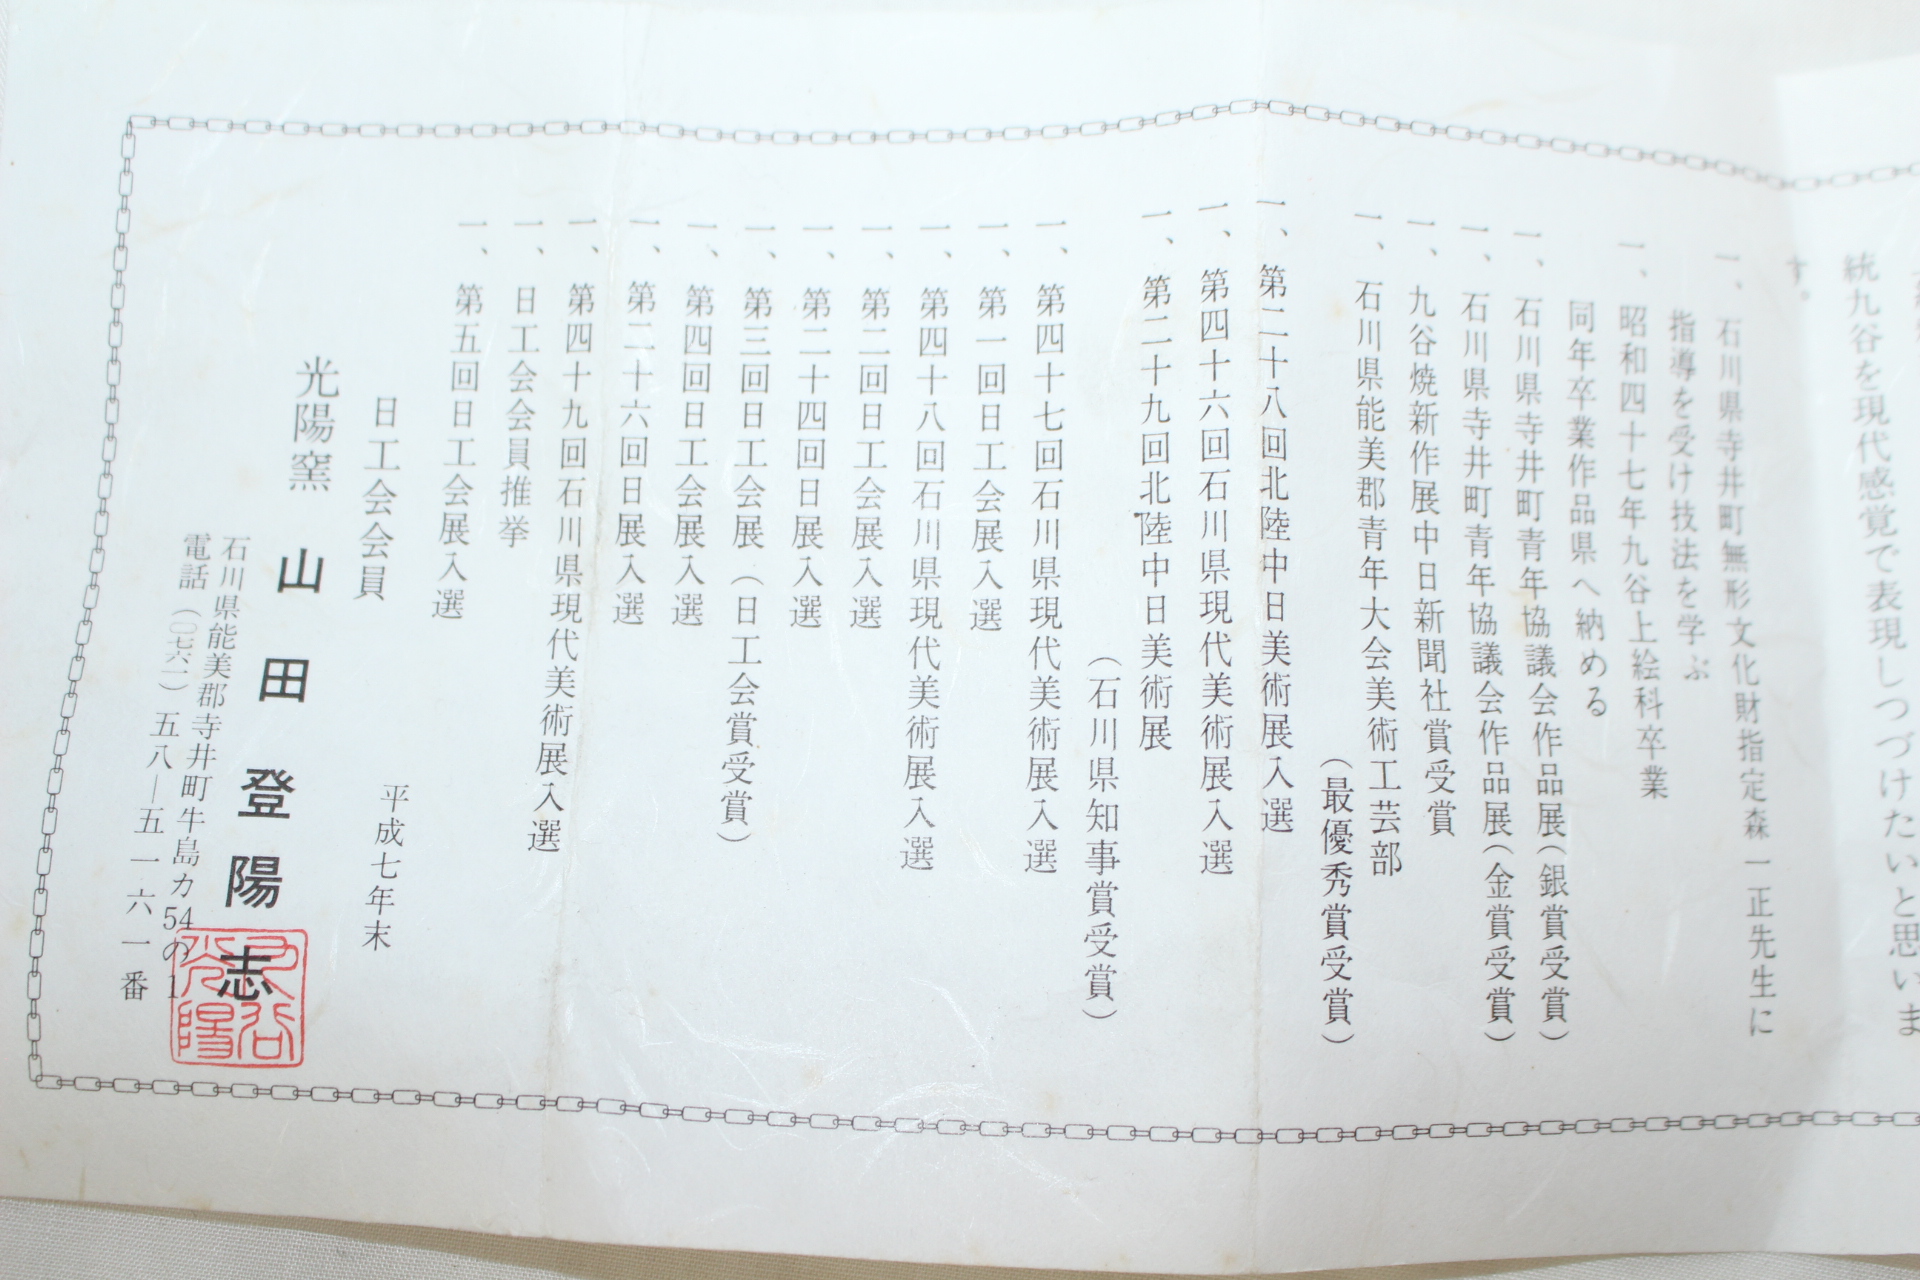 統九谷を現代感覚で表現しつづけたいと思いま
す。
一、石川県寺井町無形文化財指定森一正先生に
指導を受け技法を学ぶ
一、昭和四十七年九谷上絵科卒業
同年卒業作品県へ納める
一、石川県寺井町青年協議会作品展(銀賞受賞)
一、石川県寺井町青年協議会作品展(金賞受賞)
一、九谷焼新作展中日新聞社賞受賞
一、石川県能美郡青年大会美術工芸部
(最優秀賞受賞)
一、第二十八回北陸中日美術展入選
一、第四十六回石川県現代美術展入選
一、第二十九回北陸中日美術展
(石川県知事賞受賞)
一、第四十七回石川県現代美術展入選
一、第一回日工会展入選
一、第四十八回石川県現代美術展入選
一、第二回日工会展入選
一、第二十四回日展入選
一、第三回日工会展(日工会賞受賞)
一、第四回日工会展入選
一、第二十六回日展入選
一、第四十九回石川県現代美術展入選
一、日工会会員推挙
一、第五回日工会展入選
平成七年末
日工会会員
光陽窯 山田登陽志
九谷光陽
石川県能美郡寺井町牛島カ54の1
電話(〇七六一)五八―五一六一番